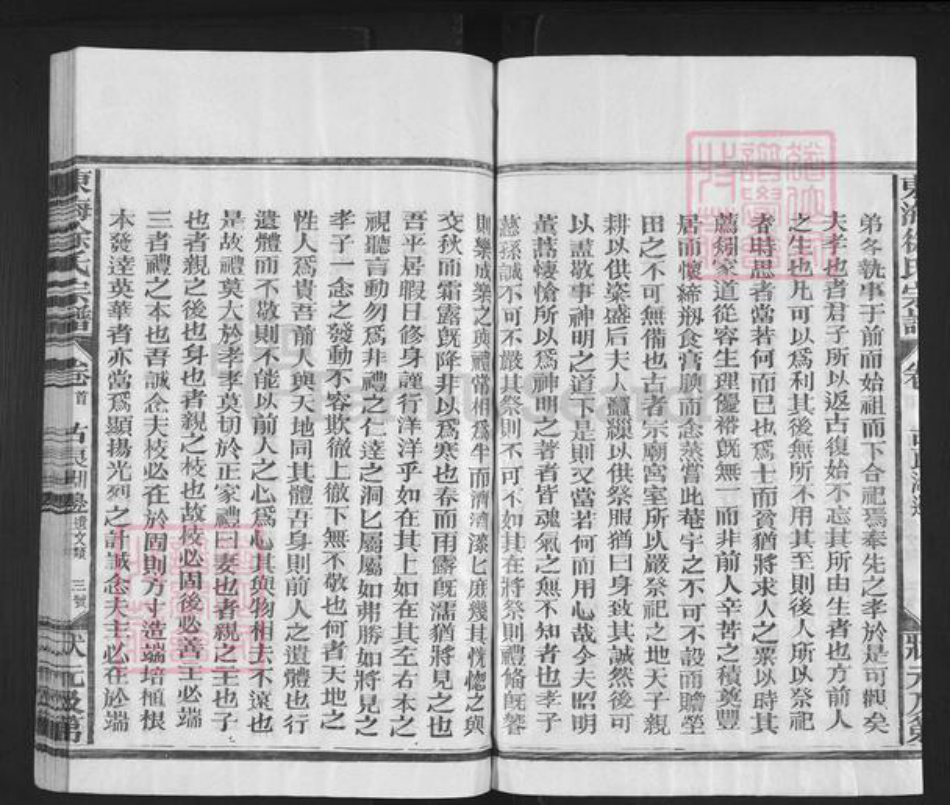 東海徐氏宗譜
弟各執事于前而始祖而下合祀焉奉先之孝於是可觀矣
夫孝也者君子所以返古復始不忘其所由生者也方前人
之生也凡可以爲利其後無所不用其至則後人所以祭祀
者時思者當若何而已也爲士而貧猶將求人之粟以時其
薦矧家道從容生理優裕旣無一而非前人辛苦之積奠豐
居而懷締剏食膏腴而念蒸嘗此菴宇之不可不設而贍塋
田之不可無備也古者宗廟宮室所以嚴祭祀之地天子親
耕以供粢盛后夫人蠶繅以供祭服猶曰身致其誠然後可
以盡敬事神明之道下是則又當若何而用心哉今夫昭明
焄蒿悽愴所以爲神明之著者皆魂氣之無不知者也孝子
慈孫誠不可不嚴其祭則不可不如其在將祭則禮備旣祭
則樂成樂之與禮常相爲牛而濟濟漆七庶幾其恍惚之與
交秋而霜露旣降非以爲寒也春而雨露旣濡猶將見之也
吾平居暇日修身謹行洋洋乎如在其上如在其左右本之
視聽言動勿爲非禮之仁達之洞匕屬屬如弗勝如將見之
孝子一念之發動不容欺徹上徹下無不敬也何者天地之
性人爲貴吾前人與天地同其體吾身則前人之遺體也行
遺體而不敬則不能以前人之心爲心其與物相去不遠也
是故禮莫大於孝孝莫切於正家禮曰妻也者親之主也子
也者親之後也身也者親之枝也故枝必固後必善主必端
三者禮之本也吾誠念夫枝必在於固則方寸造端培植根
本發達英華者亦當爲顯揚光列之計誠念夫主必在於端
東海徐氏宗譜
卷首
古良湖邊遺文類
三號
狀元及第